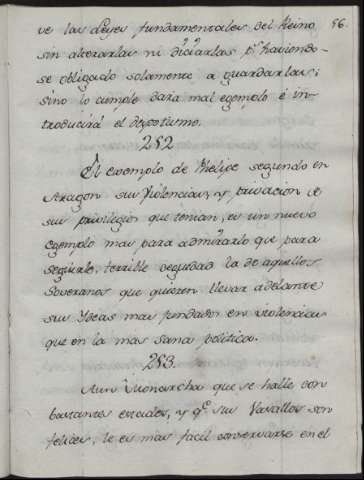 96.
ve las Leyes fundamentales del Reino
sin alterarlas ni viciarlas pr. haviendo-
se obligado solamente a guardarlas;
sino lo cumple dara mal egemplo é in-
troducirá el desorden.
252
El exemplo de Phelipe segundo en
Aragon sus violencias, y privacion de
sus privilegios que tenian, es un nuevo
egemplo mas para admirarlo que para
seguirlo, terrible ceguedad la de aquellos
Soveranos que quieren llevar adelante
sus Ydeas mas fundados en violencias
que en la mas sana politica.
253.
Aun Monarcha que se halle con
bastantes estados, y qe. sus Vasallos son
felices, le es mas facil conservarse en el